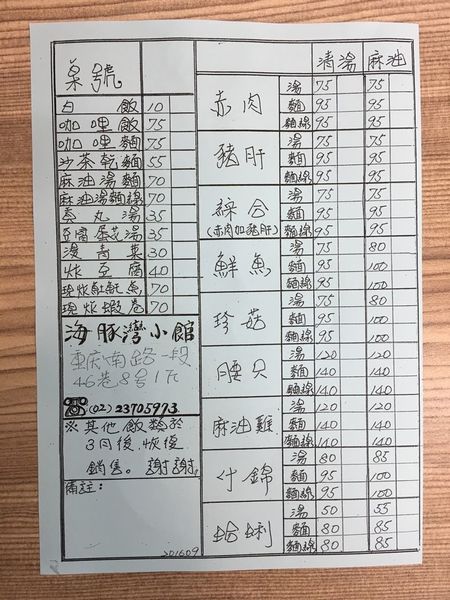 桌號
白飯 10
咖哩飯 75
咖哩麵 75
沙茶乾麵 55
麻油湯麵 70
麻油湯麵線 70
貢丸湯 35
豆腐蛋花湯 35
燙青菜 30
炸豆腐 40
現炸魟魠魚 70
現炸蝦卷 70
海豚灣小館
重庆南路一段
46巷8号1F
☎(02)23705973
※其他飯類於
3月後.恢復
銷售。謝謝
備註:
清湯 麻油
赤肉
湯 75 75
麵 95 95
麵線 95 95
豬肝
湯 75 75
麵 95 95
麵線 95 95
綜合
(赤肉加豬肝)
湯 75 75
麵 95 95
麵線 95 95
鮮魚
湯 75 80
麵 95 100
麵線 95 100
珍菇
湯 75 80
麵 95 100
麵線 95 100
腰只
湯 120 120
麵 140 140
麵線 140 140
麻油雞
湯 120 120
麵 140 140
麵線 140 140
什錦
湯 80 85
麵 95 100
麵線 95 100
蛤蜊
湯 50 55
麵 80 85
麵線 80 85
201609